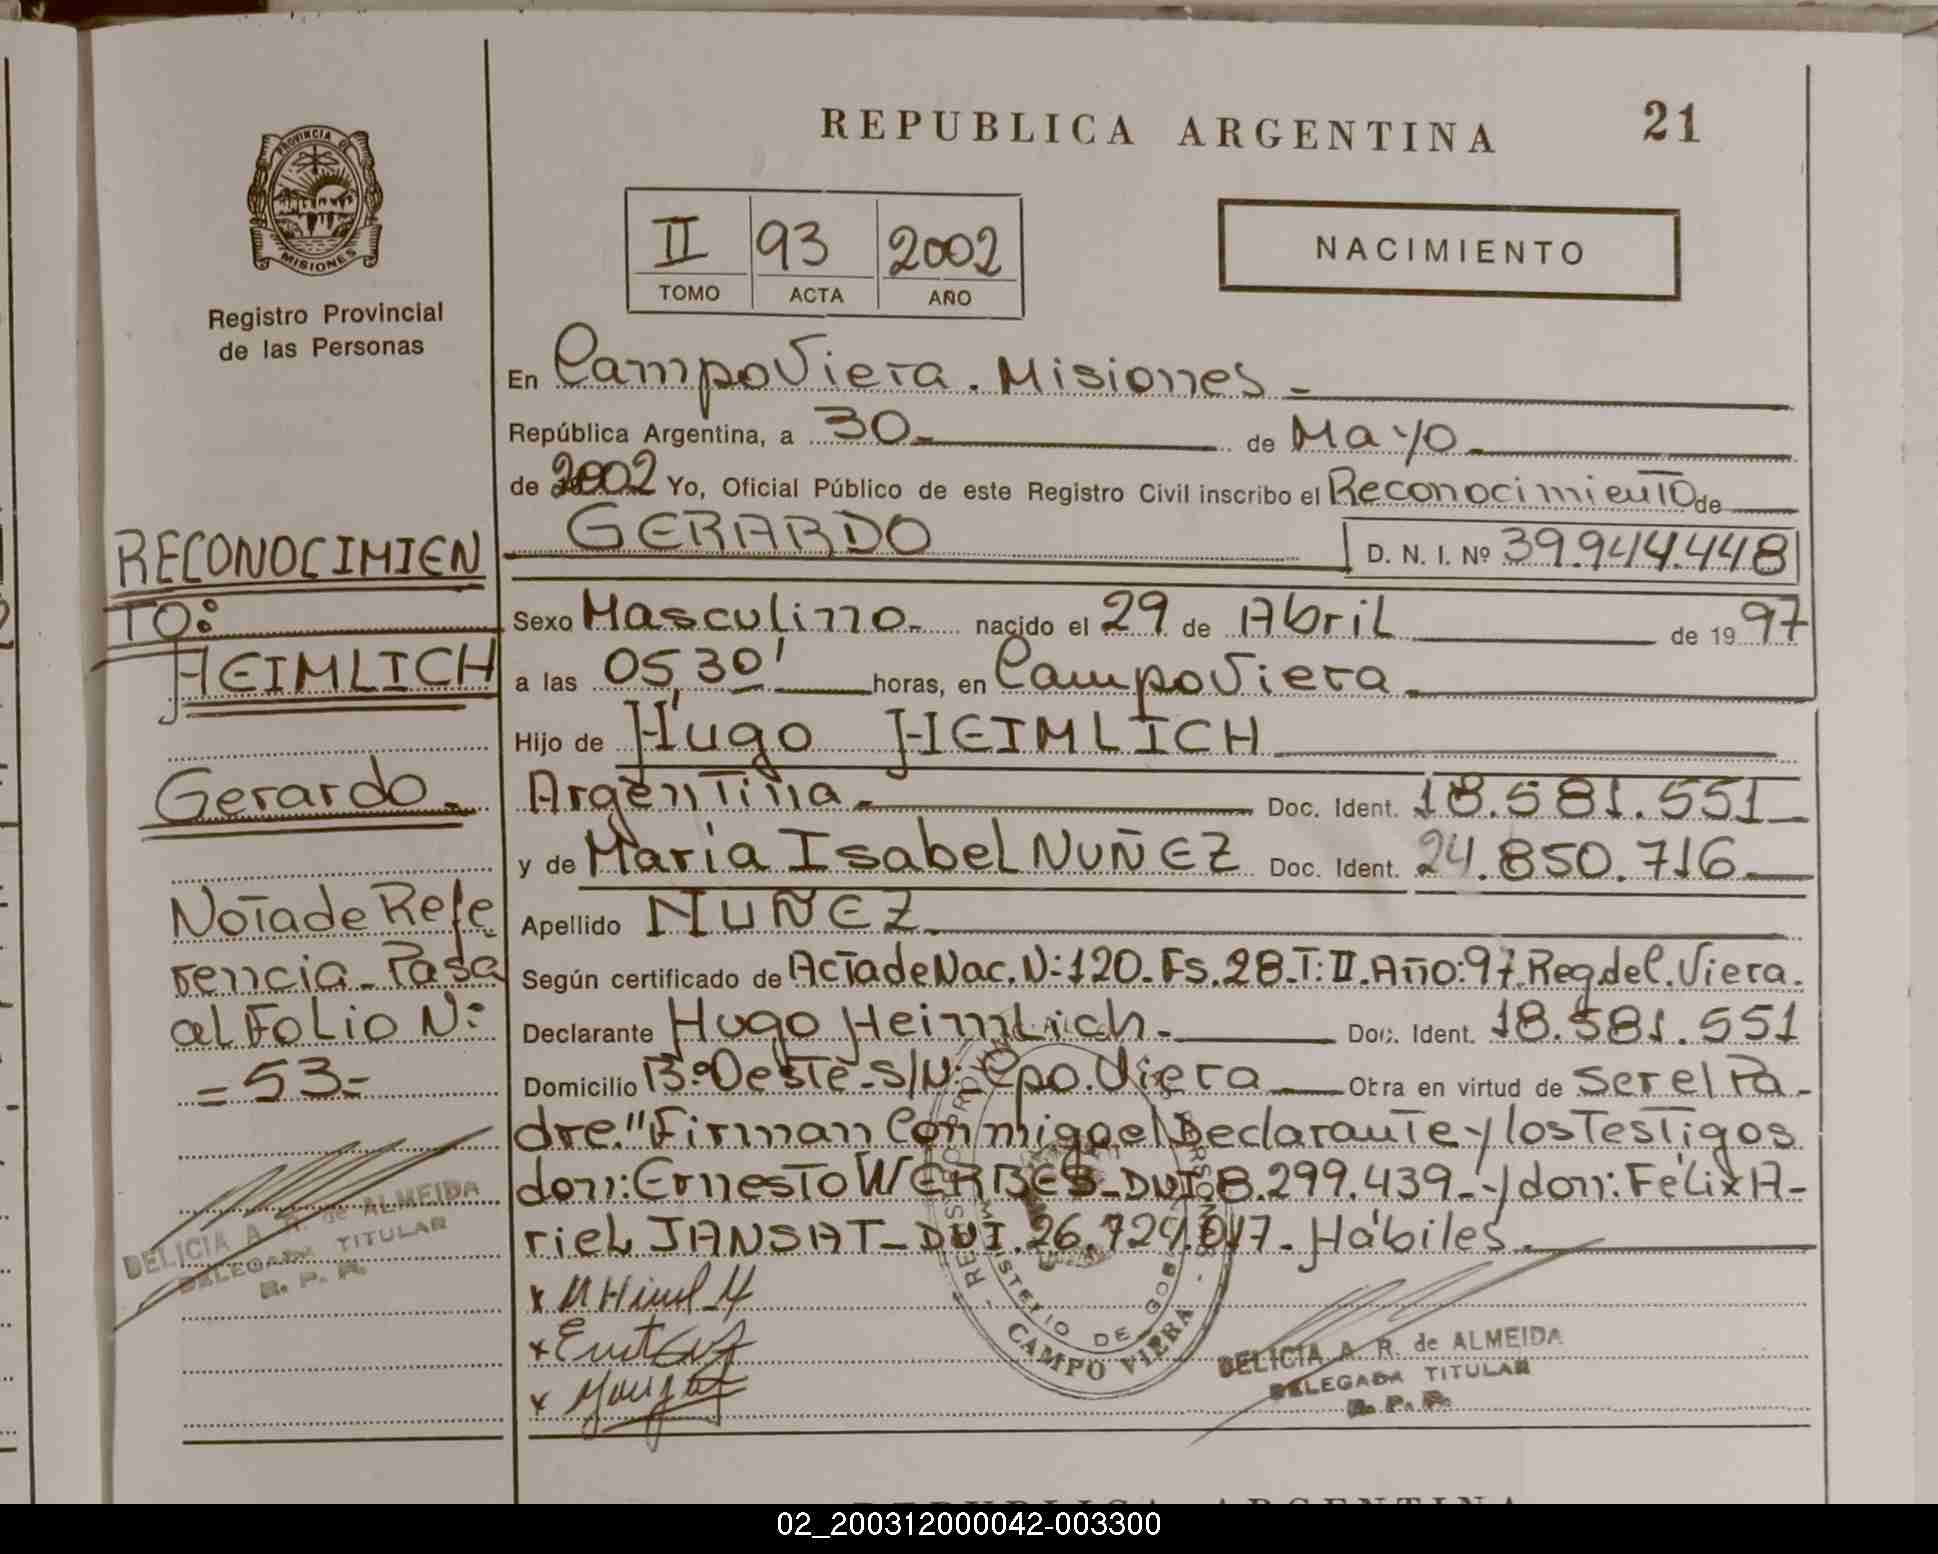 REPUBLICA ARGENTINA
21
PROVINCIA DE
MISIONES
Registro Provincial
de las Personas
II 93 2002
TOMO ACTA AÑO
NACIMIENTO
En Campo Viera. Misiones -
República Argentina, a 30 - de Mayo -
de 2002 Yo, Oficial Público de este Registro Civil inscribo el Reconocimiento de
GERARDO D. N. I. Nº 39.944.448
Sexo Masculino - nacido el 29 de Abril de 19 97
a las 05,30' horas, en Campo Viera -
Hijo de Hugo HEIMLICH
Argentina - Doc. Ident. 18.581.551
y de María Isabel NUÑEZ Doc. Ident. 24.850.716
Apellido NUÑEZ -
Según certificado de Acta de Nac. N: 120 - Fs. 28 - T: II. Año: 97. Reg. del C. Viera.
Declarante Hugo Heimlich - Doc. Ident. 18.581.551
Domicilio Bº Oeste - S/N. Cpo. Viera Obra en virtud de ser el Pa-
dre." Firman Conmigo el Declarante y los Testigos
don: Ernesto WERBES - DNI. 8.299.439 - y don: Félix A-
riel JANSAT - DNI. 26.724.017 - Hábiles.
RECONOCIMIEN
TO:
HEIMLICH
Gerardo -
Nota de Refe
rencia - Pasa
al Folio N:
= 53 =
DELICIA A. R. de ALMEIDA
DELEGADA TITULAR
R. P. P.
CAMPO VIERA
DELICIA A. R. de ALMEIDA
DELEGADA TITULAR
R. P. P.
REPUBLICA ARGENTINA
02_200312000042-003300